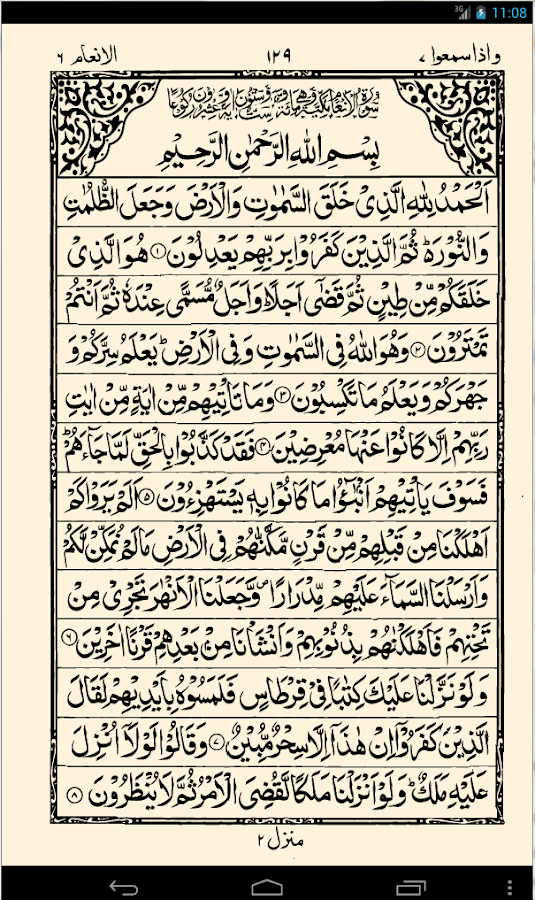 3G 11:08
واذاسمعوا ٧ ١٢٩ الانعام ٦
بِسْمِ اللهِ الرَّحْمٰنِ الرَّحِيْمِ
اَلْحَمْدُ لِلّٰهِ الَّذِيْ خَلَقَ السَّمٰوٰتِ وَالْاَرْضَ وَجَعَلَ الظُّلُمٰتِ
وَالنُّوْرَ ؕ ثُمَّ الَّذِيْنَ كَفَرُوْا بِرَبِّهِمْ يَعْدِلُوْنَ ۝١ هُوَ الَّذِيْ
خَلَقَكُمْ مِّنْ طِيْنٍ ثُمَّ قَضٰٓى اَجَلًا ؕ وَاَجَلٌ مُّسَمًّى عِنْدَهٗ ثُمَّ اَنْتُمْ
تَمْتَرُوْنَ ۝٢ وَهُوَ اللّٰهُ فِي السَّمٰوٰتِ وَفِي الْاَرْضِ ؕ يَعْلَمُ سِرَّكُمْ وَ
جَهْرَكُمْ وَيَعْلَمُ مَا تَكْسِبُوْنَ ۝٣ وَمَا تَاْتِيْهِمْ مِّنْ اٰيَةٍ مِّنْ اٰيٰتِ
رَبِّهِمْ اِلَّا كَانُوْا عَنْهَا مُعْرِضِيْنَ ۝٤ فَقَدْ كَذَّبُوْا بِالْحَقِّ لَمَّا جَآءَهُمْ ؕ
فَسَوْفَ يَاْتِيْهِمْ اَنْۢبٰٓؤُا مَا كَانُوْا بِهٖ يَسْتَهْزِءُوْنَ ۝٥ اَلَمْ يَرَوْا كَمْ
اَهْلَكْنَا مِنْ قَبْلِهِمْ مِّنْ قَرْنٍ مَّكَّنّٰهُمْ فِي الْاَرْضِ مَا لَمْ نُمَكِّنْ لَّكُمْ
وَاَرْسَلْنَا السَّمَآءَ عَلَيْهِمْ مِّدْرَارًا ۪ وَّجَعَلْنَا الْاَنْهٰرَ تَجْرِيْ مِنْ
تَحْتِهِمْ فَاَهْلَكْنٰهُمْ بِذُنُوْبِهِمْ وَاَنْشَاْنَا مِنْۢ بَعْدِهِمْ قَرْنًا اٰخَرِيْنَ ۝٦
وَلَوْ نَزَّلْنَا عَلَيْكَ كِتٰبًا فِيْ قِرْطَاسٍ فَلَمَسُوْهُ بِاَيْدِيْهِمْ لَقَالَ
الَّذِيْنَ كَفَرُوْٓا اِنْ هٰذَآ اِلَّا سِحْرٌ مُّبِيْنٌ ۝٧ وَقَالُوْا لَوْلَآ اُنْزِلَ
عَلَيْهِ مَلَكٌ ؕ وَلَوْ اَنْزَلْنَا مَلَكًا لَّقُضِيَ الْاَمْرُ ثُمَّ لَا يُنْظَرُوْنَ ۝٨
منزل ٢